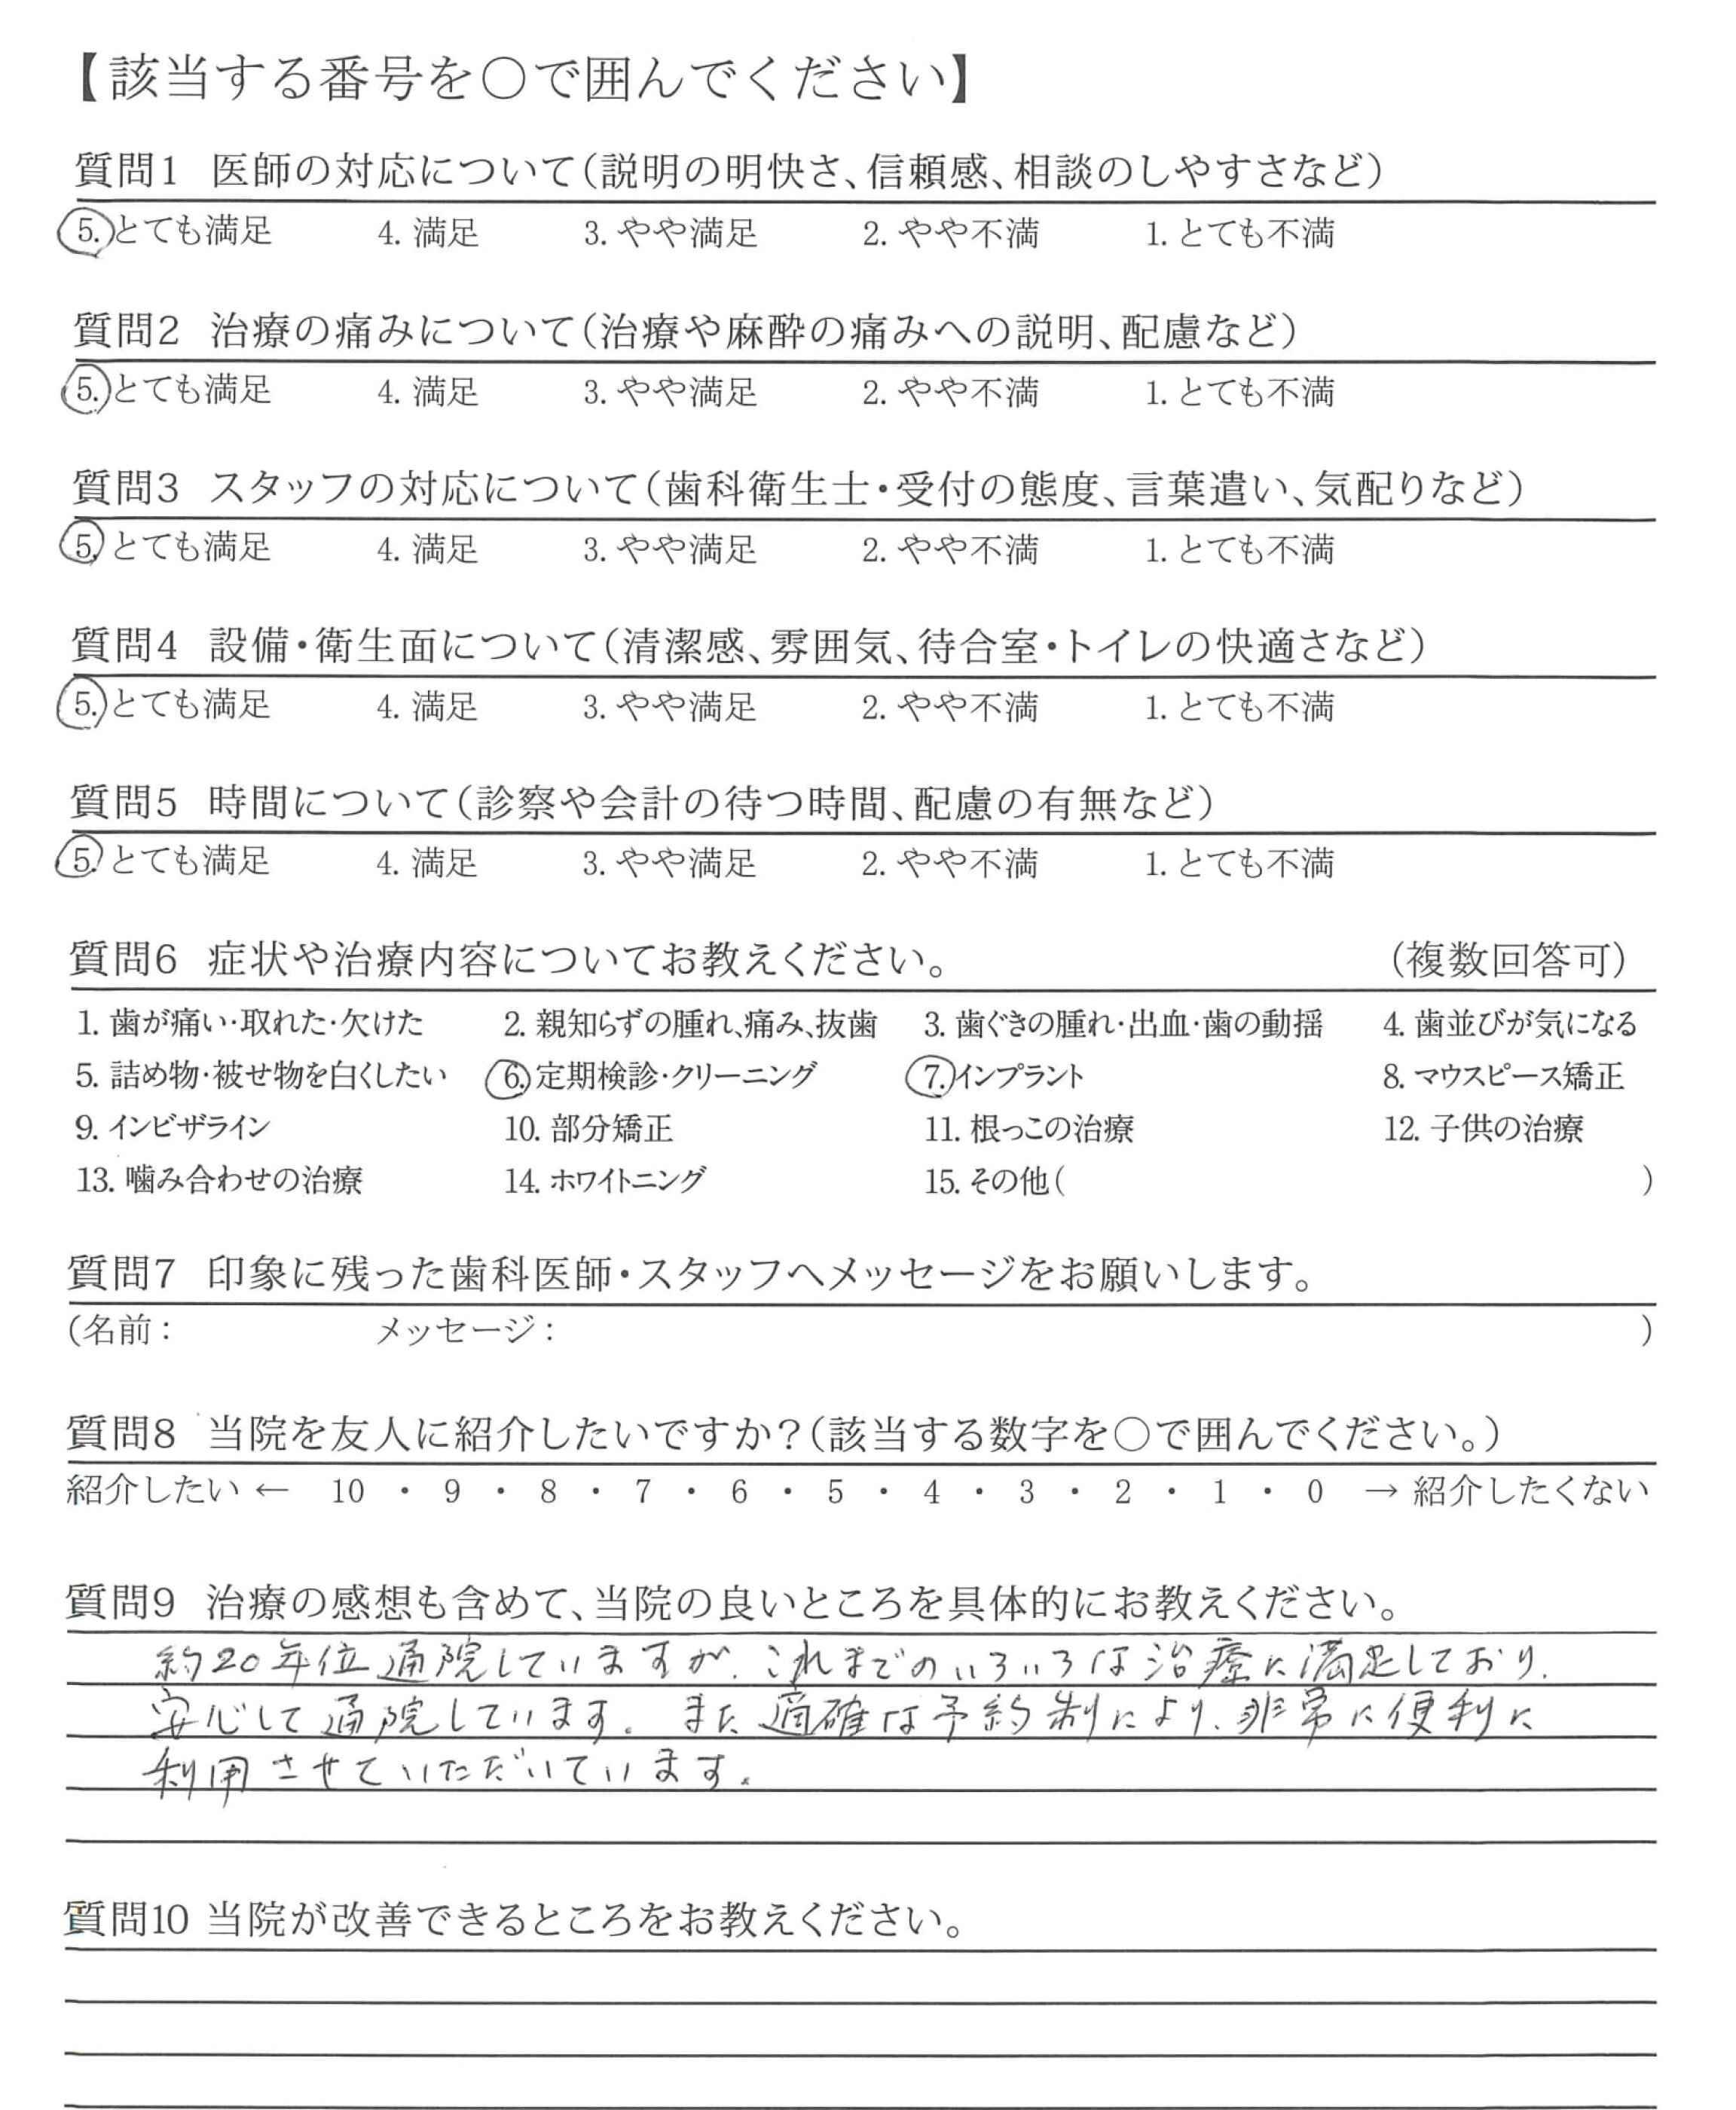 【該当する番号を○で囲んでください】
質問1 医師の対応について(説明の明快さ、信頼感、相談のしやすさなど)
5. とても満足 4. 満足 3. やや満足 2. やや不満 1. とても不満
質問2 治療の痛みについて(治療や麻酔の痛みへの説明、配慮など)
5. とても満足 4. 満足 3. やや満足 2. やや不満 1. とても不満
質問3 スタッフの対応について(歯科衛生士・受付の態度、言葉遣い、気配りなど)
5. とても満足 4. 満足 3. やや満足 2. やや不満 1. とても不満
質問4 設備・衛生面について(清潔感、雰囲気、待合室・トイレの快適さなど)
5. とても満足 4. 満足 3. やや満足 2. やや不満 1. とても不満
質問5 時間について(診察や会計の待つ時間、配慮の有無など)
5. とても満足 4. 満足 3. やや満足 2. やや不満 1. とても不満
質問6 症状や治療内容についてお教えください。 (複数回答可)
1. 歯が痛い・取れた・欠けた 2. 親知らずの腫れ、痛み、抜歯 3. 歯ぐきの腫れ・出血・歯の動揺 4. 歯並びが気になる
5. 詰め物・被せ物を白くしたい 6. 定期検診・クリーニング 7. インプラント 8. マウスピース矯正
9. インビザライン 10. 部分矯正 11. 根っこの治療 12. 子供の治療
13. 噛み合わせの治療 14. ホワイトニング 15. その他( )
質問7 印象に残った歯科医師・スタッフへメッセージをお願いします。
(名前: メッセージ: )
質問8 当院を友人に紹介したいですか?(該当する数字を○で囲んでください。)
紹介したい ← 10 ・ 9 ・ 8 ・ 7 ・ 6 ・ 5 ・ 4 ・ 3 ・ 2 ・ 1 ・ 0 → 紹介したくない
質問9 治療の感想も含めて、当院の良いところを具体的にお教えください。
約20年位通院していますが、これまでのいろいろな治療に満足しており、
安心して通院しています。また適確な予約制により、非常に便利に
利用させていただいています。
質問10 当院が改善できるところをお教えください。